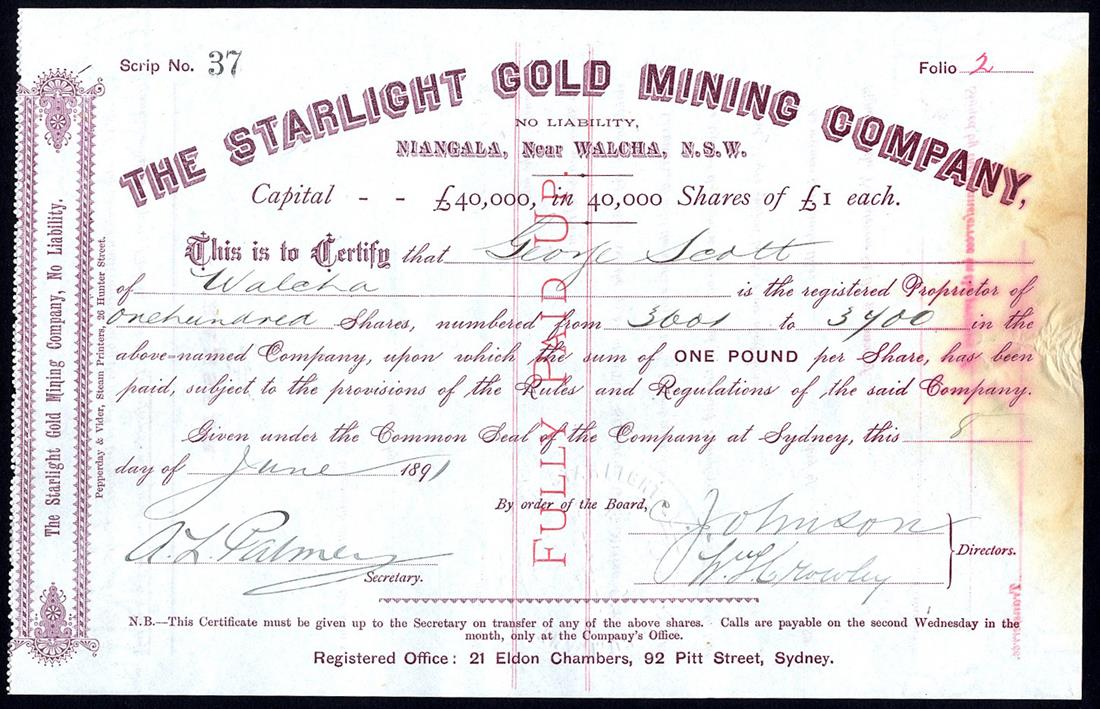 Scrip No. 37
Folio 2
THE STARLIGHT GOLD MINING COMPANY,
NO LIABILITY,
NIANGALA, Near WALCHA, N.S.W.
Capital - - £40,000, in 40,000 Shares of £1 each.
This is to Certify that George Scott
of Walcha is the registered Proprietor of
onehundred Shares, numbered from 3001 to in the
above-named Company, upon which the sum of ONE POUND per Share, has been
paid, subject to the provisions of the Rules and Regulations of the said Company.
Given under the Common Seal of the Company at Sydney, this 8
day of June 1891
By order of the Board,
C. Johnson
A. L. Palmer
Crowley
Directors.
Secretary.
N.B.—This Certificate must be given up to the Secretary on transfer of any of the above shares. Calls are payable on the second Wednesday in the
month, only at the Company's Office.
Registered Office: 21 Eldon Chambers, 92 Pitt Street, Sydney.
FULLY PAID UP.
The Starlight Gold Mining Company, No Liability.
Pepperday & Vider, Steam Printers, 26 Hunter Street.